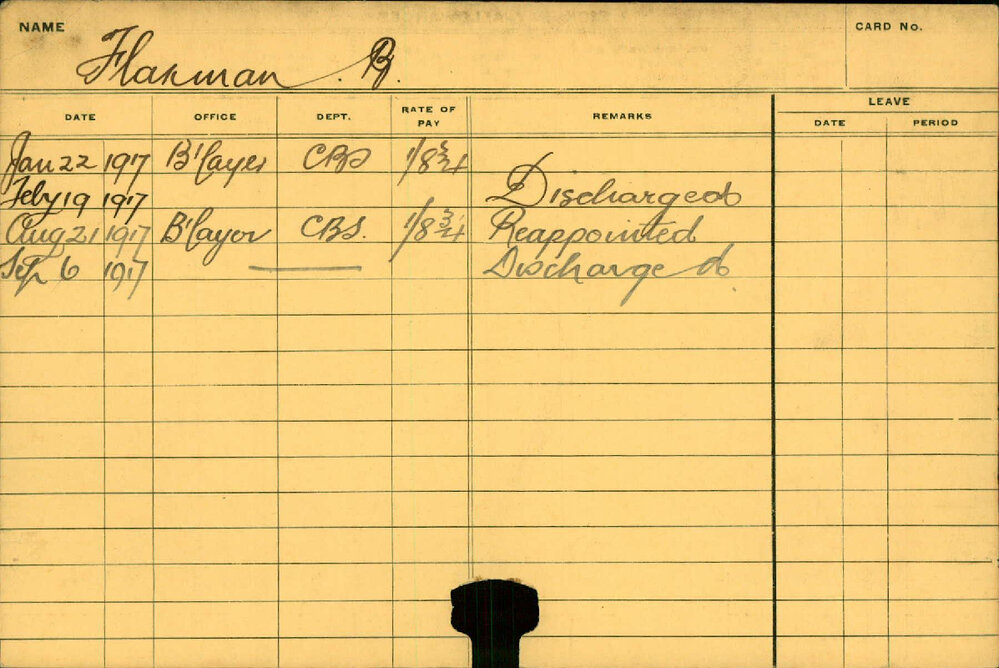 NAME CARD No.
Flakman. R.
DATE OFFICE DEPT. RATE OF PAY REMARKS LEAVE
DATE PERIOD
Jan 22 1917 B'layer CBS 1/8 3/4
Feby 19 1917 Discharged
Aug 21 1917 B'layer CBS. 1/8 3/4 Reappointed
Sep 6 1917 Discharged